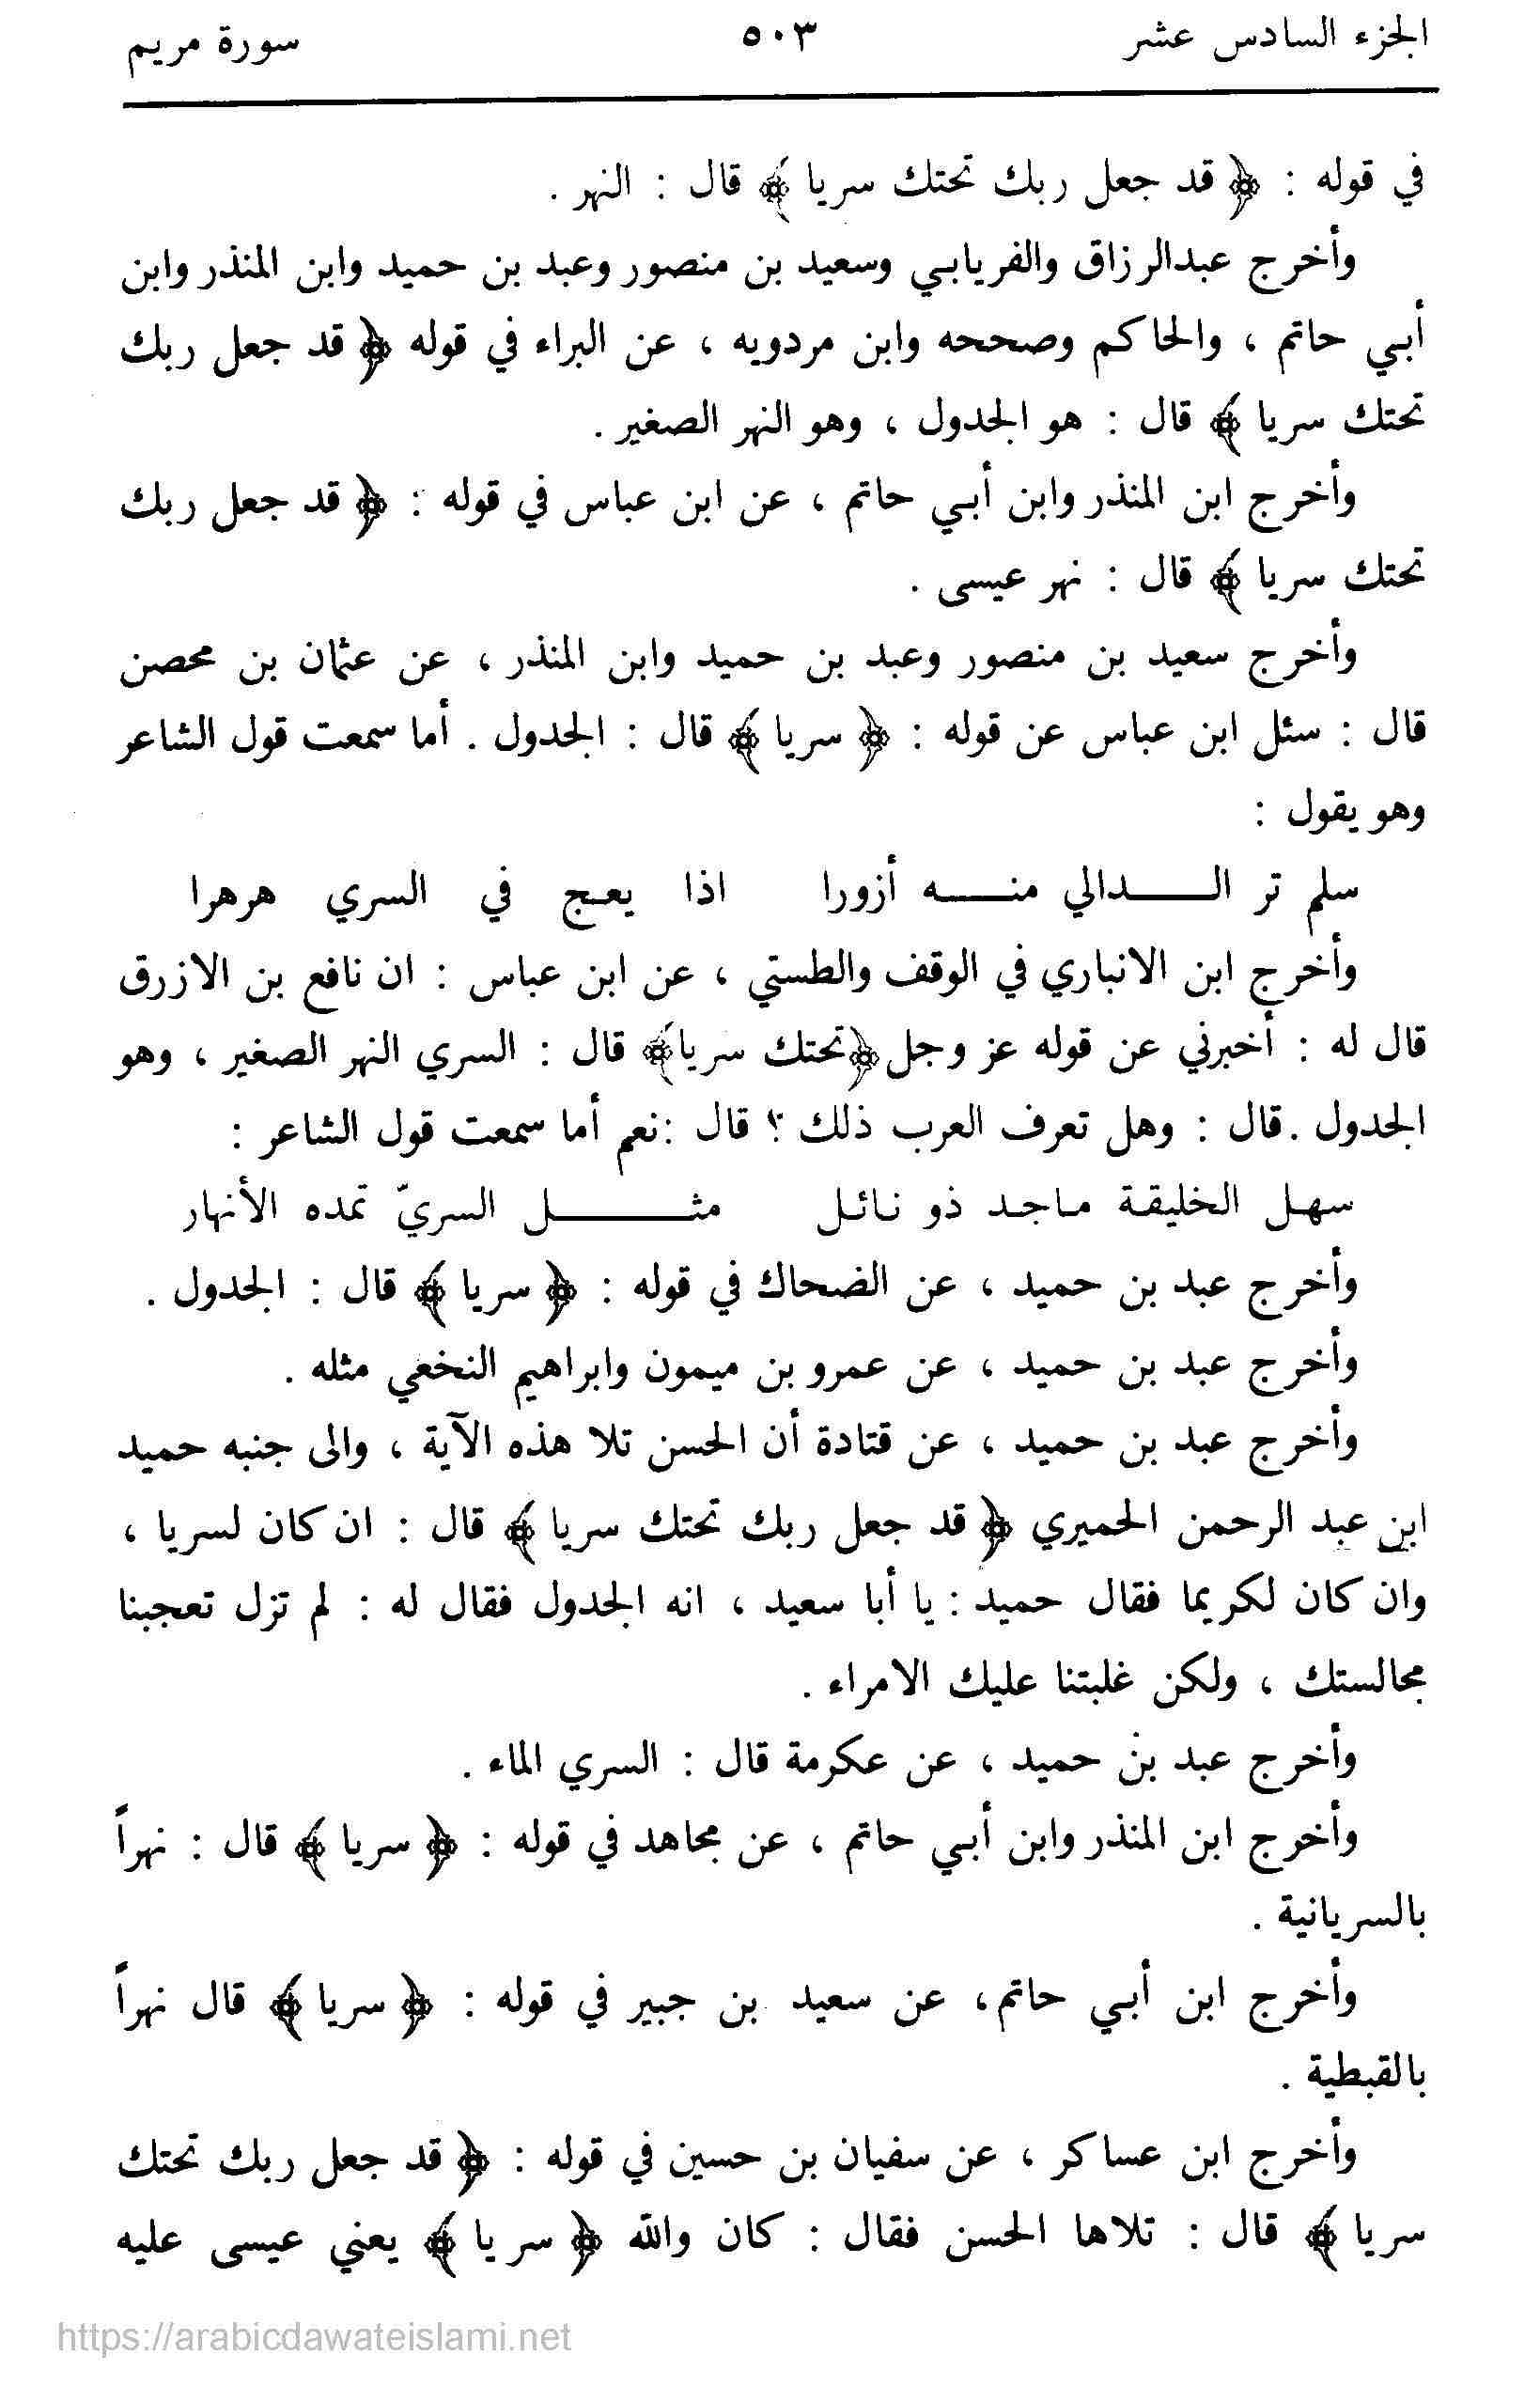 الجزء السادس عشر ٥٠٣ سورة مريم
في قوله : ﴿ قد جعل ربك تحتك سريا ﴾ قال : النهر .
وأخرج عبدالرزاق والفريابي وسعيد بن منصور وعبد بن حميد وابن المنذر وابن
أبي حاتم ، والحاكم وصححه وابن مردويه ، عن البراء في قوله ﴿ قد جعل ربك
تحتك سريا ﴾ قال : هو الجدول ، وهو النهر الصغير .
وأخرج ابن المنذر وابن أبي حاتم ، عن ابن عباس في قوله : ﴿ قد جعل ربك
تحتك سريا ﴾ قال : نهر عيسى .
وأخرج سعيد بن منصور وعبد بن حميد وابن المنذر ، عن عثمان بن محصن
قال : سئل ابن عباس عن قوله : ﴿ سريا ﴾ قال : الجدول . أما سمعت قول الشاعر
وهو يقول :
سلم تر الـدالي منـه أزورا اذا يعج في السري هرهرا
وأخرج ابن الانباري في الوقف والطستي ، عن ابن عباس : ان نافع بن الازرق
قال له : أخبرني عن قوله عز وجل ﴿تحتك سريا﴾ قال : السري النهر الصغير ، وهو
الجدول . قال : وهل تعرف العرب ذلك ؟ قال :نعم أما سمعت قول الشاعر :
سهل الخليقة ماجد ذو نائل مثـل السريّ تمده الأنهار
وأخرج عبد بن حميد ، عن الضحاك في قوله : ﴿ سريا ﴾ قال : الجدول .
وأخرج عبد بن حميد ، عن عمرو بن ميمون وابراهيم النخعي مثله .
وأخرج عبد بن حميد ، عن قتادة أن الحسن تلا هذه الآية ، والى جنبه حميد
ابن عبد الرحمن الحميري ﴿ قد جعل ربك تحتك سريا ﴾ قال : ان كان لسريا ،
وان كان لكريما فقال حميد : يا أبا سعيد ، انه الجدول فقال له : لم تزل تعجبنا
مجالستك ، ولكن غلبتنا عليك الامراء .
وأخرج عبد بن حميد ، عن عكرمة قال : السري الماء .
وأخرج ابن المنذر وابن أبي حاتم ، عن مجاهد في قوله : ﴿ سريا ﴾ قال : نهراً
بالسريانية .
وأخرج ابن أبي حاتم، عن سعيد بن جبير في قوله : ﴿ سريا ﴾ قال نهراً
بالقبطية .
وأخرج ابن عساكر ، عن سفيان بن حسين في قوله : ﴿ قد جعل ربك تحتك
سريا ﴾ قال : تلاها الحسن فقال : كان والله ﴿ سريا ﴾ يعني عيسى عليه
https://arabicdawateislami.net